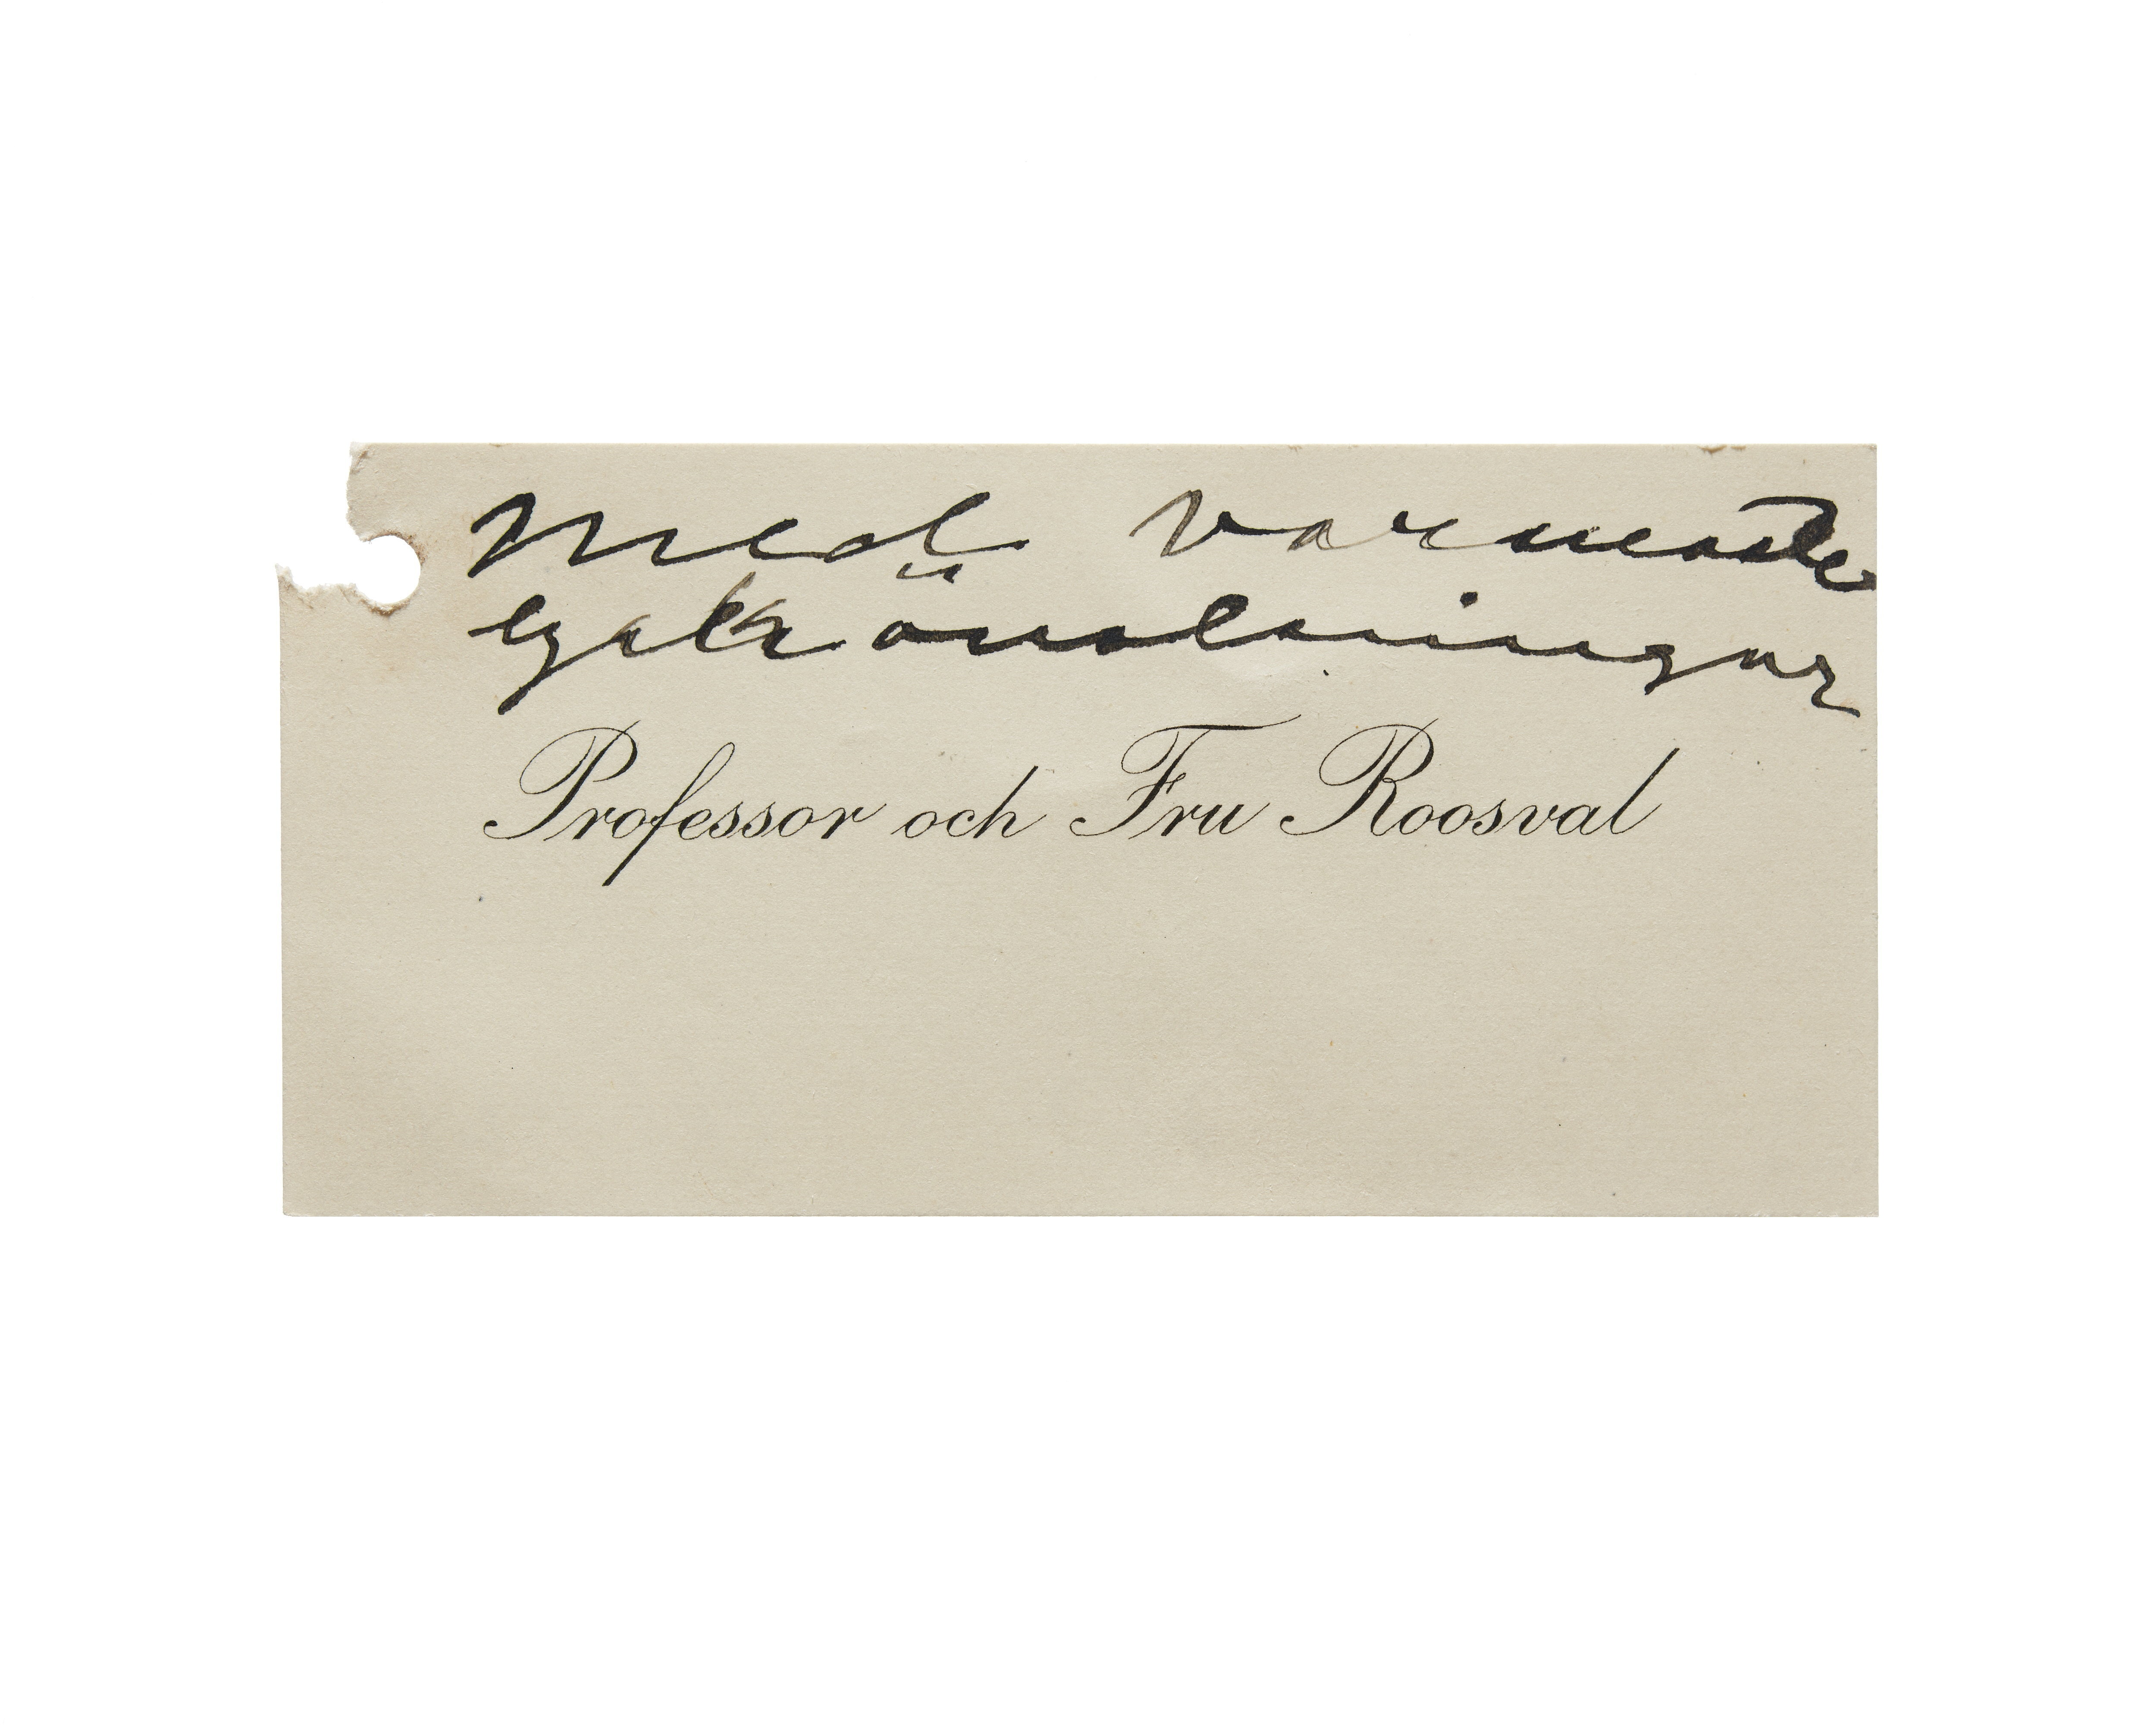 Med varmaste
lyckönskningar
Professor och Fru Roosval